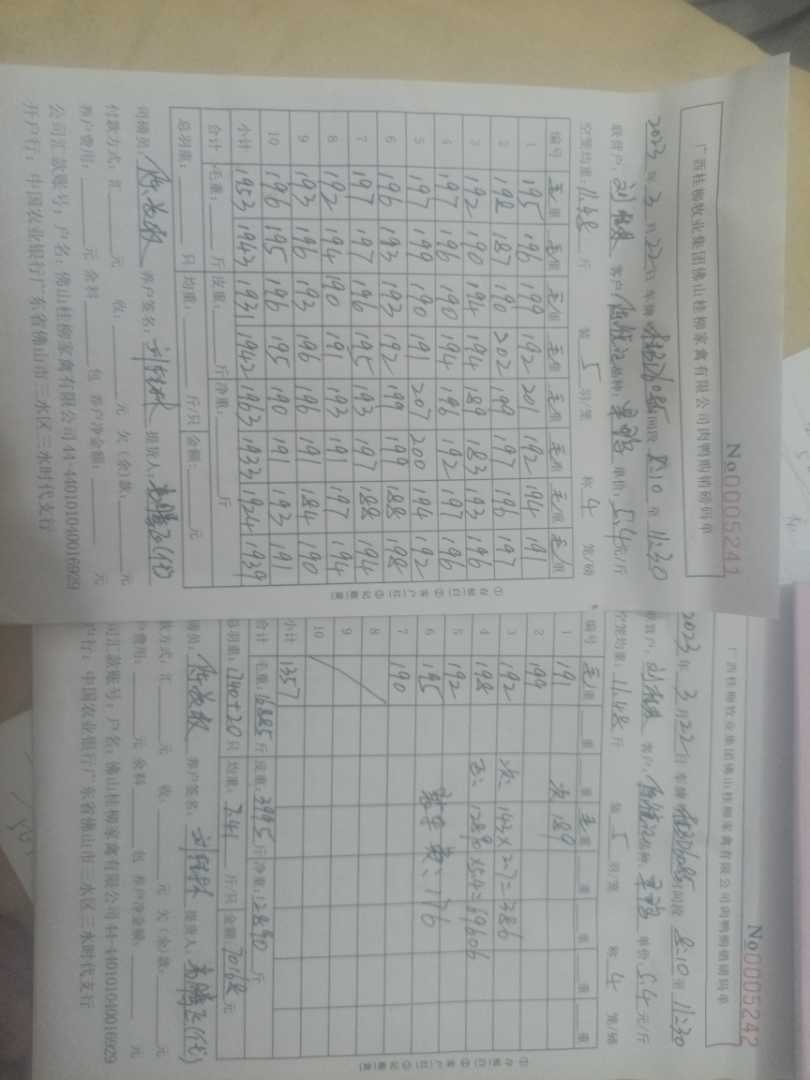 广西桂柳牧业集团佛山桂柳家禽有限公司肉鸭购销磅码单
No0005241
2023年3月22日 车牌 时间段 8:10 至 11:30
联营户: 客户: 品种: 单价: 5.4元/斤
空笼均重: 11.48 斤 装 5 羽/笼 称 4 笼/磅
编号 毛重 毛重 毛重 毛重 毛重 毛重 毛重 毛重
1 195 196 199 192 201 192 194 191
2 198 187 190 202 199 197 196 197
3 192 190 194 194 189 183 193 196
4 197 196 190 194 196 192 197 196
5 197 199 190 191 207 200 194 192
6 196 193 193 192 199 199 188 198
7 197 197 196 195 193 197 188 194
8 192 194 190 191 193 191 197 194
9 193 196 193 196 196 191 184 190
10 196 195 196 195 190 191 193 191
小计 1953 1943 1931 1942 1963 1933 1924 1939
合计 毛重: 斤 皮重: 斤 净重: 斤
总羽重: 只 均重: 斤/只 金额: 元
司磅员: 养户签名: 提货人:
付款方式: 汇 元 收: 元 欠(余)款: 元
养户费用: 元 余料 包 养户净金额: 元
公司汇款账号:户名:佛山桂柳家禽有限公司44-440101040016929
开户行:中国农业银行广东省佛山市三水区三水时代支行
广西桂柳牧业集团佛山桂柳家禽有限公司肉鸭购销磅码单
No0005242
2023年3月22日 车牌 时间段 8:10 至 11:30
客户: 品种: 单价: 5.4元/斤
空笼均重: 11.48 斤 装 5 羽/笼 称 4 笼/磅
编号 毛重 重 重 毛重 重 重 重 重
1 191 次 189
2 199
3 192 次: 143×2.7=386
4 198 12890×5.4=69606
5 192
6 195 176
7 190
8
9
10
小计 1357
合计 毛重: 16885 斤 皮重: 3995 斤 净重: 12890 斤
总羽重: 1740+20 只 均重: 7.41 斤/只 金额: 70168 元
养户签名: 提货人:
元 收: 元 欠(余)款: 元
元 余料 包 养户净金额: 元
司汇款账号:户名:佛山桂柳家禽有限公司44-440101040016929
户行:中国农业银行广东省佛山市三水区三水时代支行